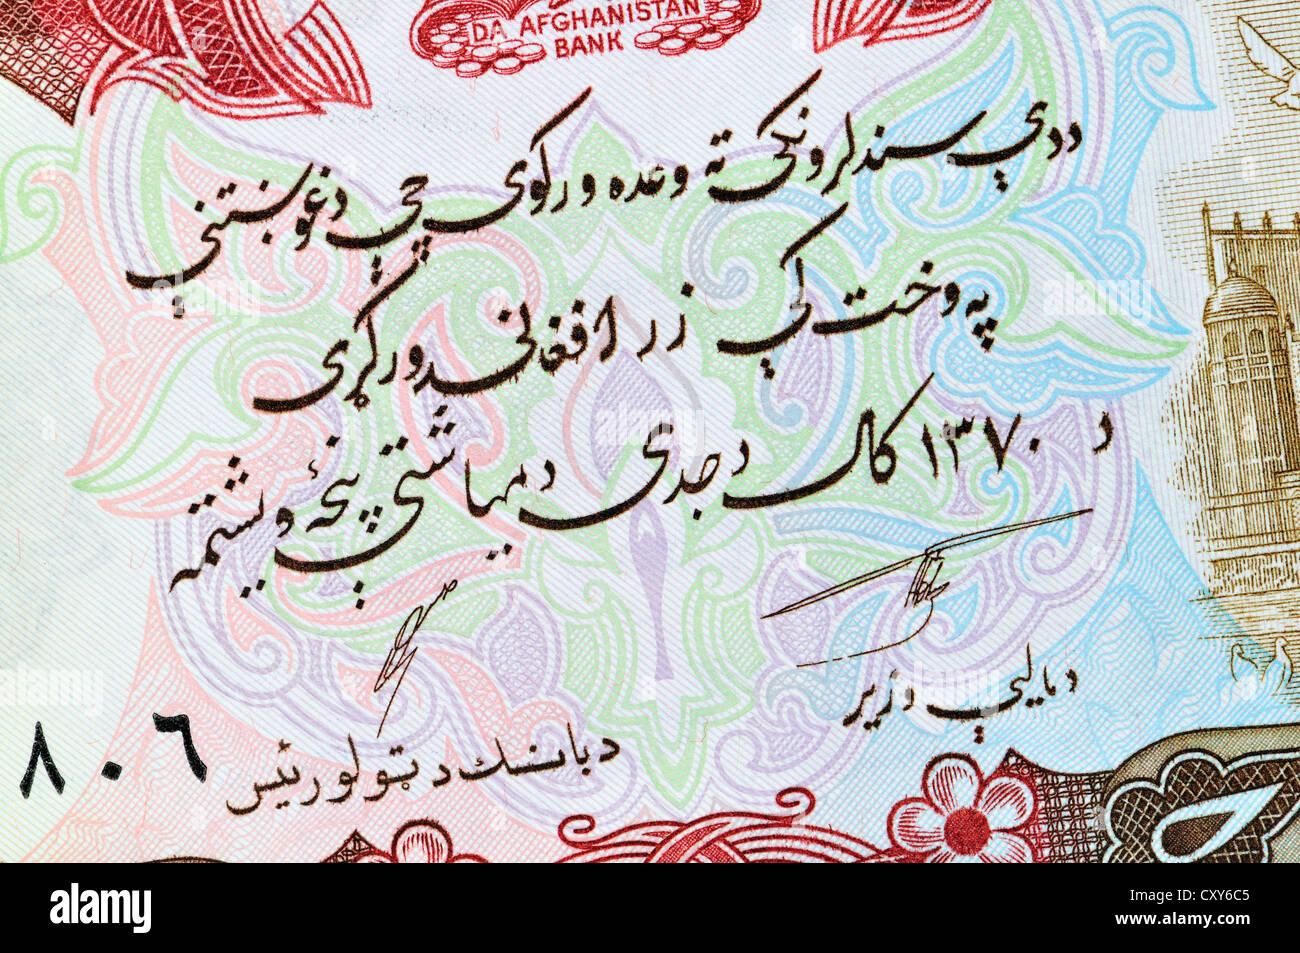 DA AFGHANISTAN
BANK
ددې سند لرونکي ته وعده ورکوي چې دغوښتنې
په وخت کې زر افغانۍ ورکړي
د ١٣٧٠ کال د جدي د مياشتې پنځه ويشتمه
د ماليې وزير
د بانک د ټولو رئيس
٨٠٦
alamy
Image ID: CXY6C5
www.alamy.com